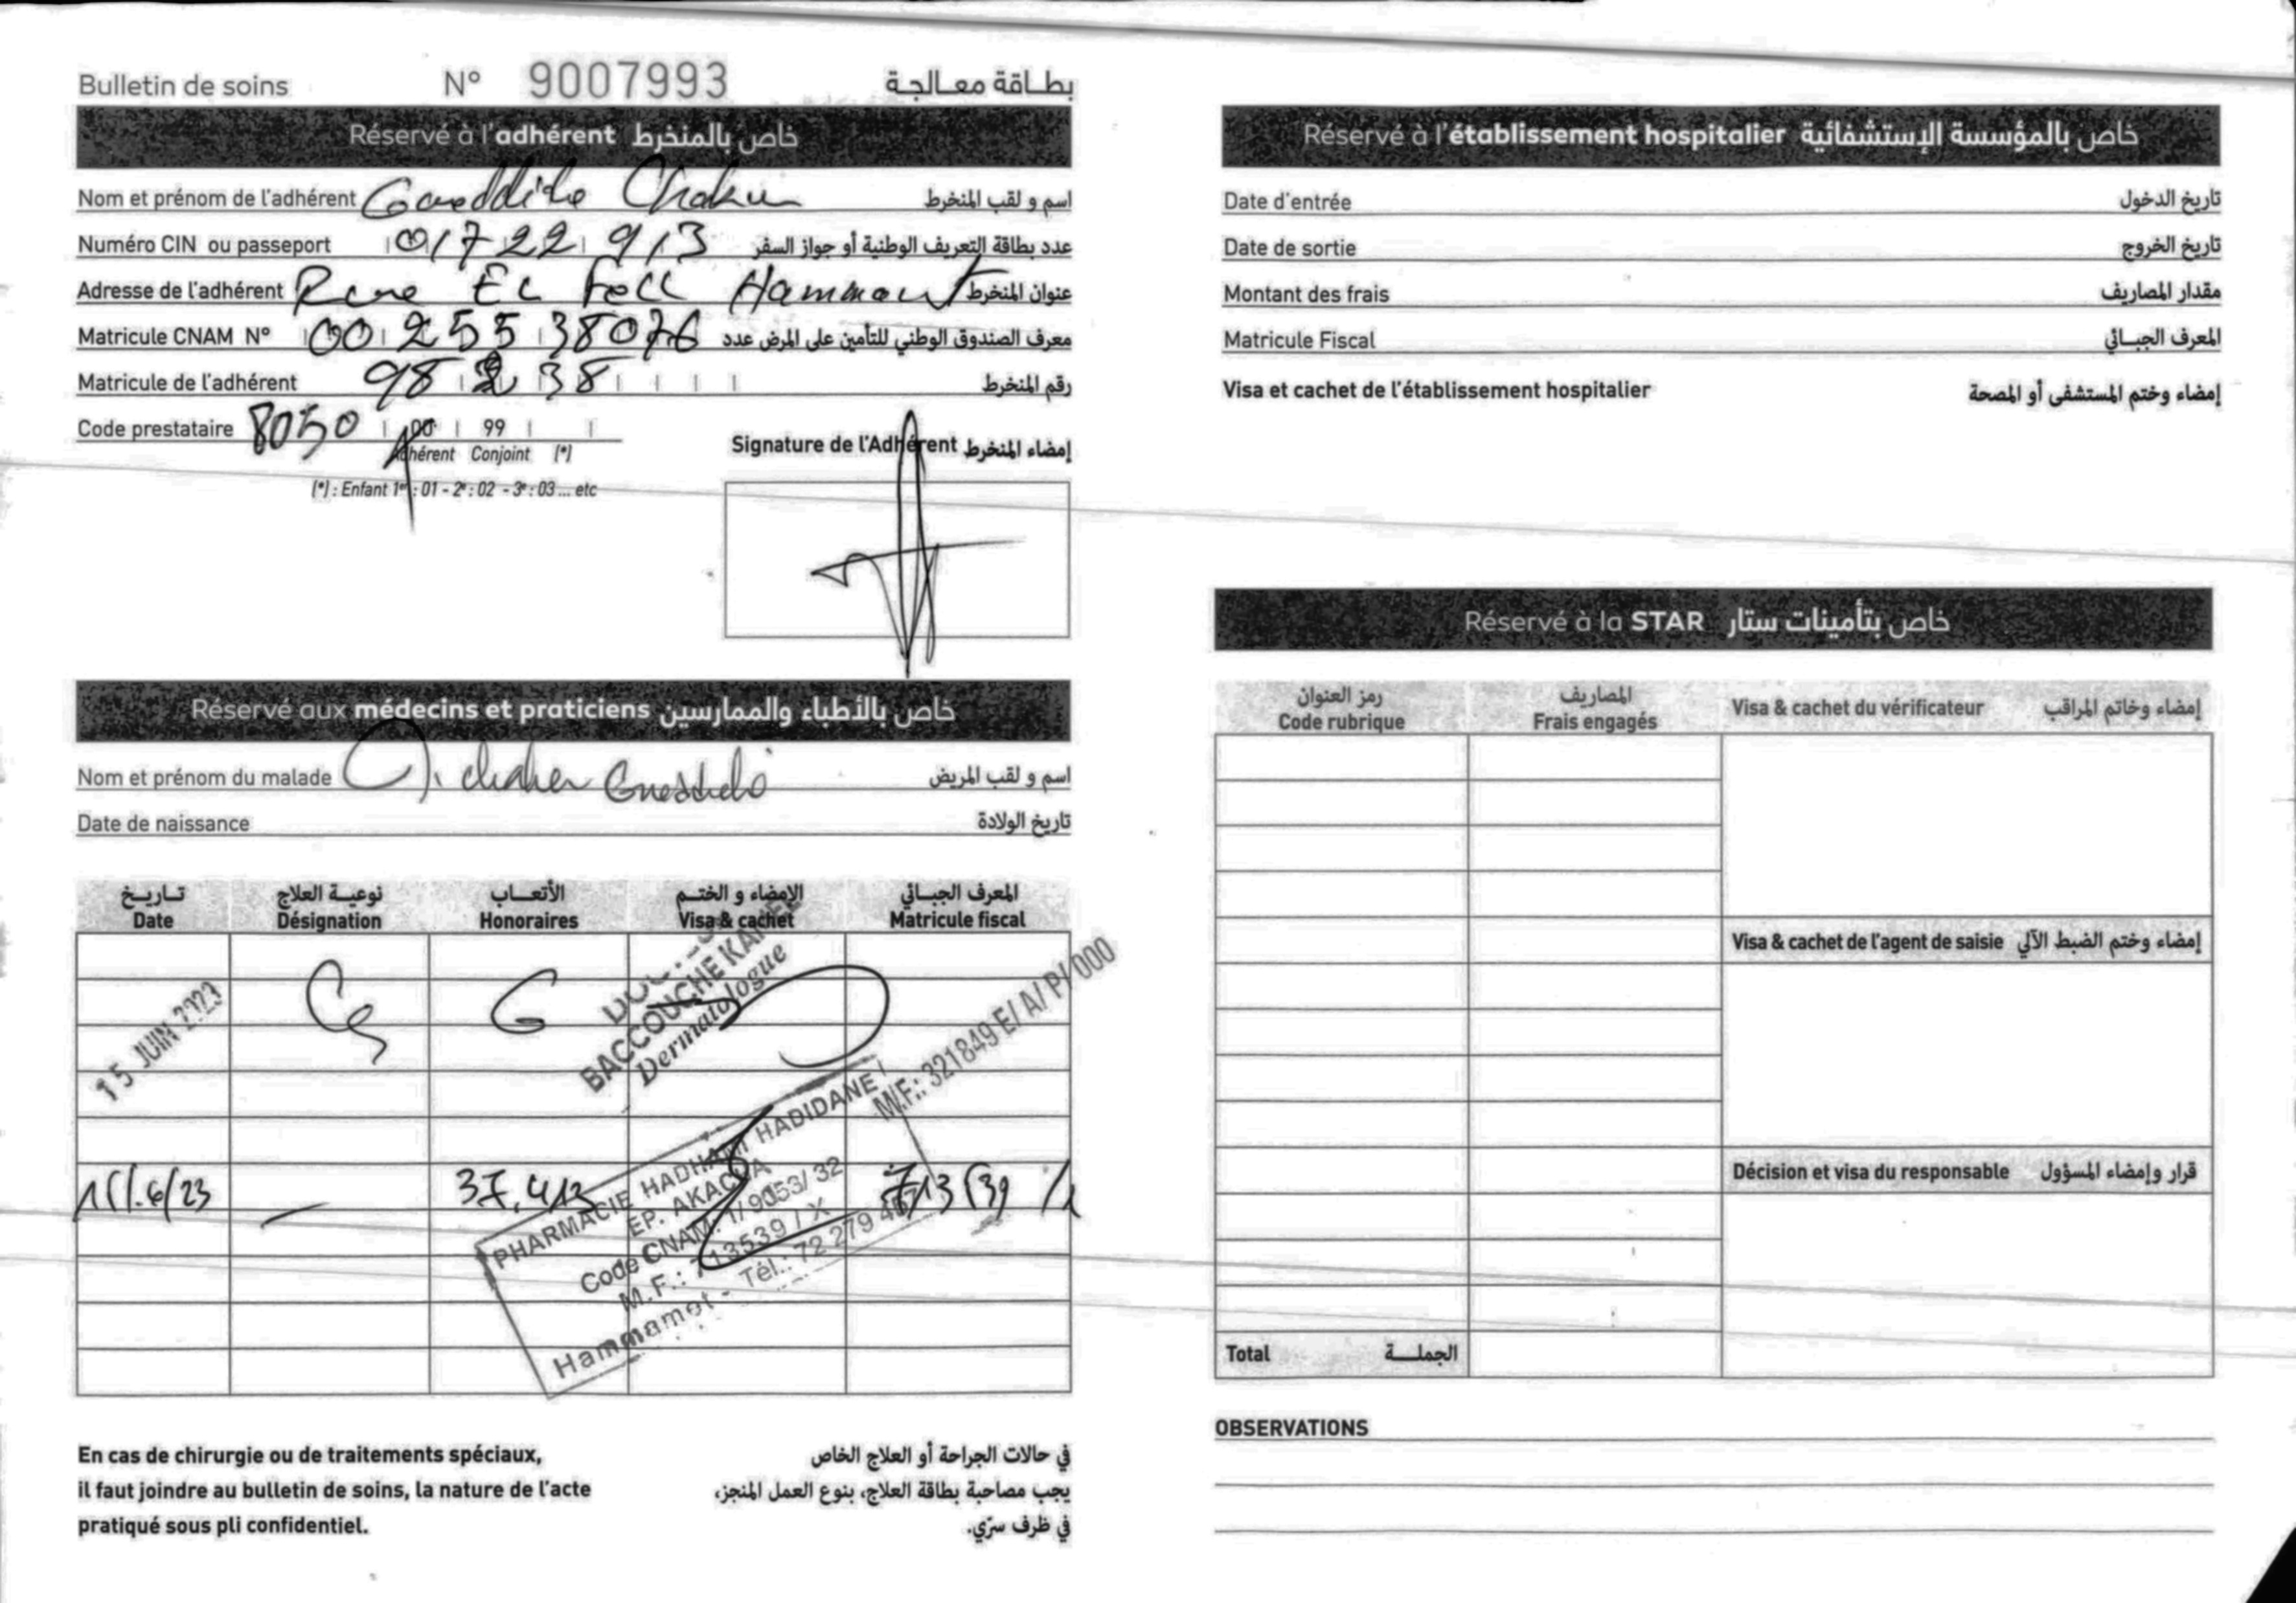 Bulletin de soins N° 9007993 بطاقة معالجة
Réservé à l'adhérent خاص بالمنخرط
Nom et prénom de l'adhérent Gueddiche Chaker اسم و لقب المنخرط
Numéro CIN ou passeport 01722913 عدد بطاقة التعريف الوطنية أو جواز السفر
Adresse de l'adhérent El Fell Hammamet عنوان المنخرط
Matricule CNAM N° 0025538076 معرف الصندوق الوطني للتأمين على المرض عدد
Matricule de l'adhérent 98238 رقم المنخرط
Code prestataire 8050 00 99
Adhérent Conjoint (*)
(*) : Enfant 1er : 01 - 2e : 02 - 3e : 03 ... etc
Signature de l'Adhérent إمضاء المنخرط
Réservé aux médecins et praticiens خاص بالأطباء والممارسين
Nom et prénom du malade Chaker Gueddiche اسم و لقب المريض
Date de naissance تاريخ الولادة
تاريخ نوعية العلاج الأتعاب الإمضاء و الختم المعرف الجبائي
Date Désignation Honoraires Visa & cachet Matricule fiscal
15 JUIN 2023
BACCOUCHE
Dermatologue
M.F.: 321849 E/ A/ P/ 000
37,413
PHARMACIE HADHAMI HADIDANE
EP. AKACHA
Code CNAM: 1/ 9053/ 32
M.F.: 713539 / X
Hammamet - Tél.: 72 279
En cas de chirurgie ou de traitements spéciaux,
il faut joindre au bulletin de soins, la nature de l'acte
pratiqué sous pli confidentiel.
في حالات الجراحة أو العلاج الخاص
يجب مصاحبة بطاقة العلاج، بنوع العمل المنجز،
في ظرف سرّي.
Réservé à l'établissement hospitalier خاص بالمؤسسة الإستشفائية
Date d'entrée تاريخ الدخول
Date de sortie تاريخ الخروج
Montant des frais مقدار المصاريف
Matricule Fiscal المعرف الجبائي
Visa et cachet de l'établissement hospitalier إمضاء وختم المستشفى أو المصحة
Réservé à la STAR خاص بتأمينات ستار
رمز العنوان المصاريف
Code rubrique Frais engagés Visa & cachet du vérificateur إمضاء وخاتم المراقب
Visa & cachet de l'agent de saisie إمضاء وختم الضبط الآلي
Décision et visa du responsable قرار وإمضاء المسؤول
Total الجملة
OBSERVATIONS